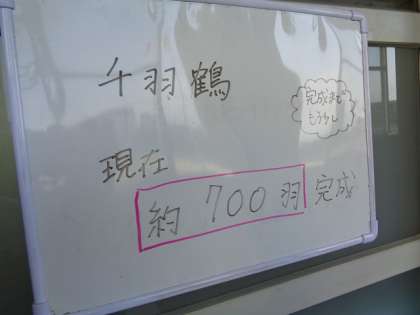 千羽鶴
完成まで
もう少し
現在
約 700 羽 完成